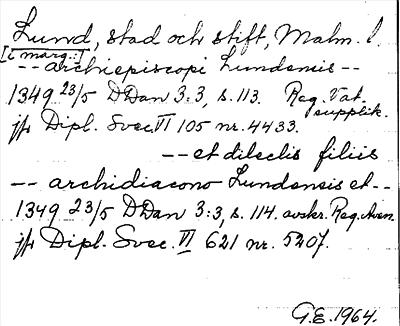 Lund, stad och stift, Malm. l.
[i marg.:]
-- archiepiscopi Lundensis --
1349 23/5 DDan 3:3, s. 113. Reg. Vat.
supplik.
jfr Dipl. Svec. VI 105 nr. 4433.
-- et dilectis filiis
-- archidiacono Lundensis et --
1349 23/5 DDan 3:3, s. 114. avskr. Reg. Aven.
jfr Dipl. Svec. VI 621 nr. 5207.
G.E. 1964.